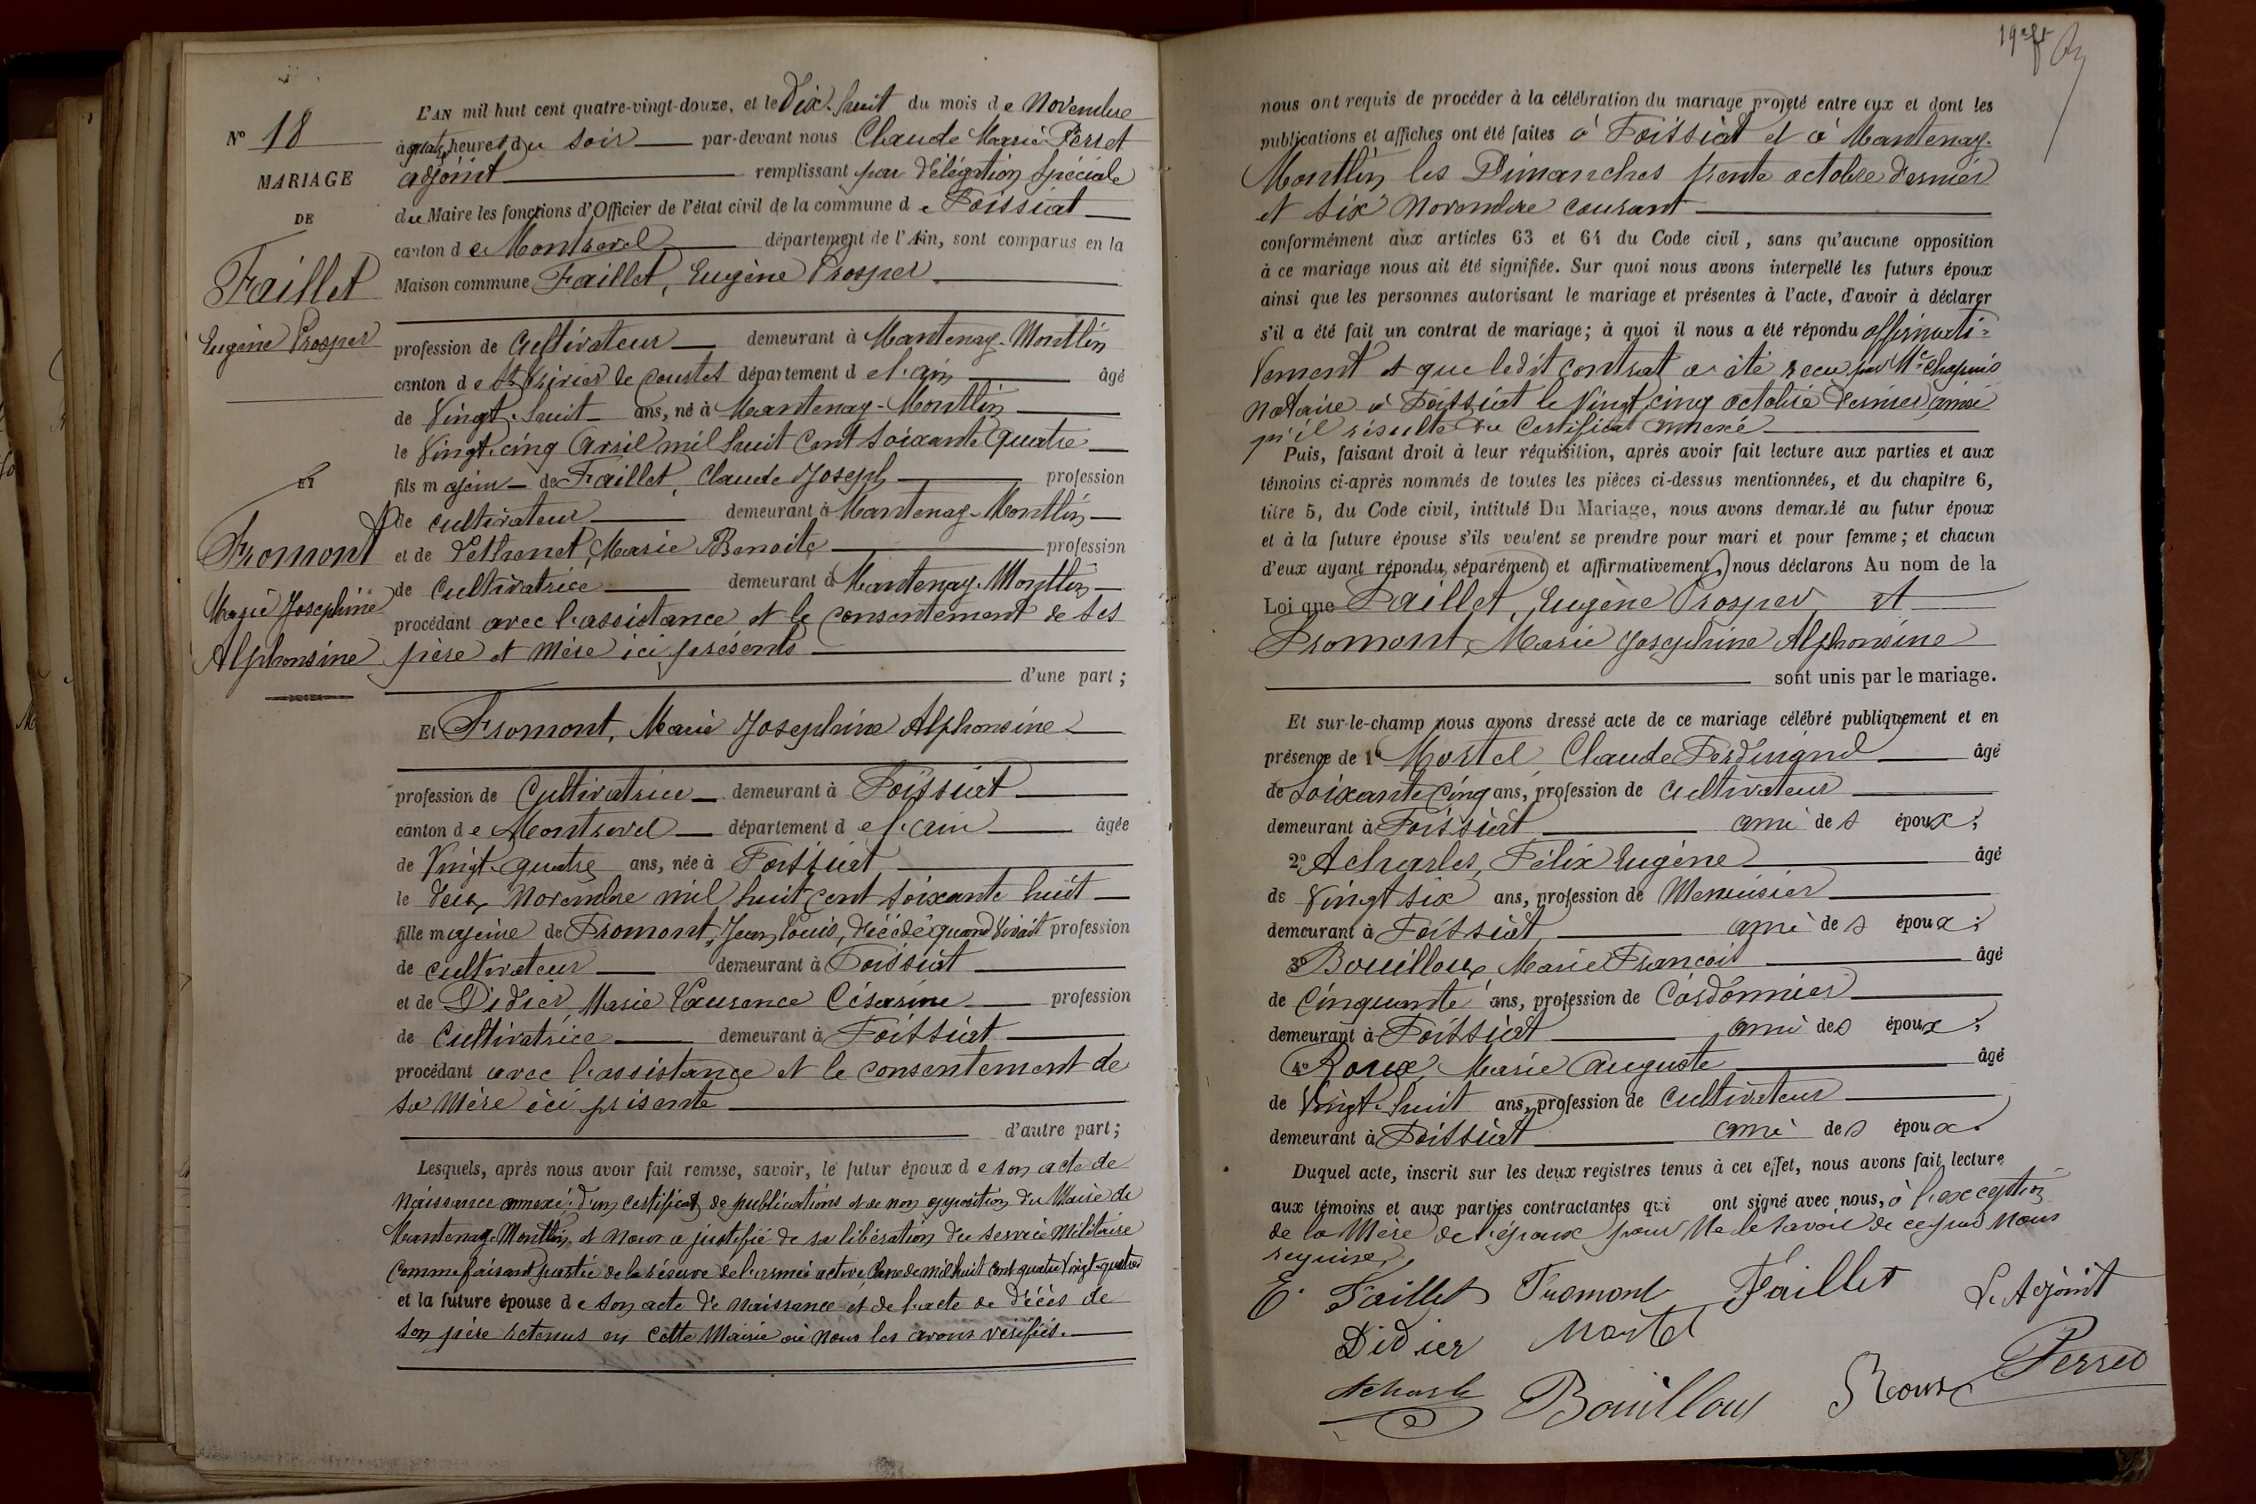 N° 18
MARIAGE
DE
Faillet
Eugène Prosper
ET
Fromont
Marie Josephine
Alphonsine
L'AN mil huit cent quatre-vingt-douze, et le Dix-huit du mois de Novembre
à quatre heures du soir par-devant nous Claude Marie Perret
adjoint remplissant par délégation spéciale
du Maire les fonctions d'Officier de l'état civil de la commune de Foissiat
canton de Montrevel département de l'Ain, sont comparus en la
Maison commune Faillet, Eugène Prosper
profession de Cultivateur demeurant à Mantenay-Montlin
canton de St Trivier de Courtes département de l'ain âgé
de Vingt-huit ans, né à Mantenay-Montlin
le Vingt-cinq Avril mil huit cent soixante quatre
fils majeur de Faillet, Claude Joseph profession
de cultivateur demeurant à Mantenay-Montlin
et de Pethenet, Marie Benoite profession
de Cultivatrice demeurant à Mantenay-Montlin
procédant avec l'assistance et le consentement de ses
père et mère ici présents
d'une part;
Et Fromont, Marie Josephine Alphonsine
profession de Cultivatrice demeurant à Foissiat
canton de Montrevel département de l'ain âgée
de Vingt-quatre ans, née à Foissiat
le deux Novembre mil huit cent soixante huit
fille majeure de Fromont, Jean Louis, décédé quand vivait profession
de cultivateur demeurant à Foissiat
et de Didier, Marie Laurence Césarine profession
de Cultivatrice demeurant à Foissiat
procédant avec l'assistance et le consentement de
sa mère ici présente
d'autre part;
Lesquels, après nous avoir fait remise, savoir, le futur époux de son acte de
naissance annexé, d'un certificat de publications et de non opposition du Maire de
Mantenay-Montlin et nous a justifié de sa libération du service militaire
comme faisant partie de la réserve de l'armée active, classe de mil huit cent quatre vingt-quatre
et la future épouse de son acte de naissance et de l'acte de décès de
son père retenus en cette Mairie où nous les avons vérifiés.
19e ft
nous ont requis de procéder à la célébration du mariage projeté entre eux et dont les
publications et affiches ont été faites à Foissiat et à Mantenay-
Montlin les Dimanches trente octobre dernier
et six Novembre courant
conformément aux articles 63 et 64 du Code civil, sans qu'aucune opposition
à ce mariage nous ait été signifiée. Sur quoi nous avons interpellé les futurs époux
ainsi que les personnes autorisant le mariage et présentes à l'acte, d'avoir à déclarer
s'il a été fait un contrat de mariage; à quoi il nous a été répondu affirmati=
vement et que le dit contrat a été reçu par Me Chapuis
notaire à Foissiat le vingt cinq octobre dernier, ainsi
qu'il résulte du Certificat annexé
Puis, faisant droit à leur réquisition, après avoir fait lecture aux parties et aux
témoins ci-après nommés de toutes les pièces ci-dessus mentionnées, et du chapitre 6,
titre 5, du Code civil, intitulé Du Mariage, nous avons demandé au futur époux
et à la future épouse s'ils veulent se prendre pour mari et pour femme; et chacun
d'eux ayant répondu séparément et affirmativement, nous déclarons Au nom de la
Loi que Faillet, Eugène Prosper, et
Fromont, Marie Josephine Alphonsine
sont unis par le mariage.
Et sur-le-champ nous avons dressé acte de ce mariage célébré publiquement et en
présence de 1° Mortel Claude Ferdinand âgé
de Soixante Cinq ans, profession de Cultivateur
demeurant à Foissiat ami des époux;
2° Acharles, Félix Eugène âgé
de Vingt six ans, profession de Menuisier
demeurant à Foissiat ami des époux;
3° Bouilloux, Marie François âgé
de Cinquante ans, profession de Cordonnier
demeurant à Foissiat ami des époux;
4° Roux, Marie Auguste âgé
de Vingt-huit ans, profession de cultivateur
demeurant à Foissiat ami des époux.
Duquel acte, inscrit sur les deux registres tenus à cet effet, nous avons fait lecture
aux témoins et aux parties contractantes qui ont signé avec nous, à l'exception
de la Mère de l'époux pour ne le savoir de ce par nous
requise.
E. Faillet Fromont Faillet L'Adjoint
Didier Mortel
Acharle Bouilloux Roux Perret